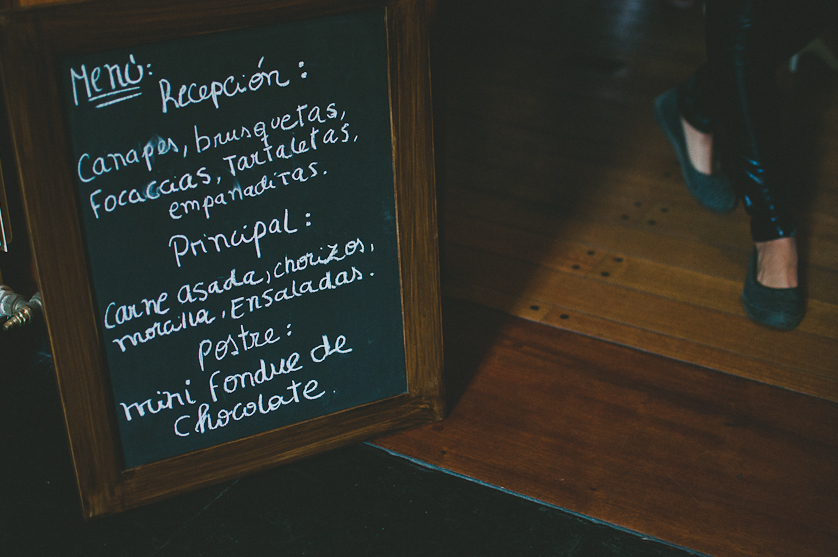 Menú:
Recepción:
Canapes, brusquetas,
Focaccias, Tartaletas,
empanaditas.
Principal:
Carne asada, chorizos,
morcilla, Ensaladas.
Postre:
mini fondue de
Chocolate.